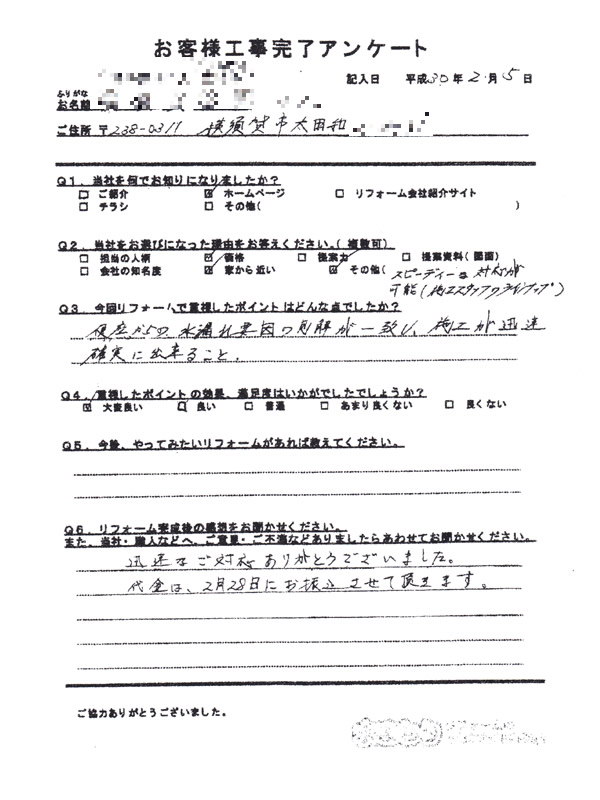 お客様工事完了アンケート
記入日 平成30年2月5日
ふりがな
お名前
ご住所 〒238-0311 横須賀市太田和
Q1．当社を何でお知りになりましたか？
□ ご紹介 ☑ ホームページ □ リフォーム会社紹介サイト
□ チラシ □ その他( )
Q2．当社をお選びになった理由をお答えください。(複数可)
□ 担当の人柄 ☑ 価格 □ 提案力 □ 提案資料(図面)
□ 会社の知名度 ☑ 家から近い ☑ その他(スピーディーな対応が
可能(施工スタッフのラインアップ)
Q3．今回リフォームで重視したポイントはどんな点でしたか？
屋庇からの水漏れ要因の見解が一致し、施工が迅速
確実に出来ること．
Q4．重視したポイントの効果、満足度はいかがでしたでしょうか？
☑ 大変良い □ 良い □ 普通 □ あまり良くない □ 良くない
Q5．今後、やってみたいリフォームがあれば教えてください。
Q6．リフォーム完成後の感想をお聞かせください。
また、当社・職人などへ、ご意見・ご不満などありましたらあわせてお聞かせください。
迅速なご対応ありがとうございました。
代金は、2月28日にお振込させて頂きます。
ご協力ありがとうございました。